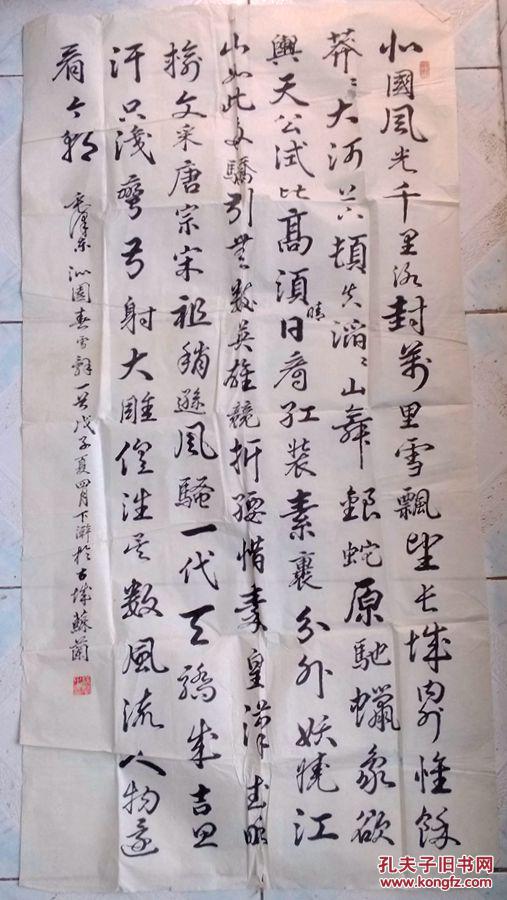 北國風光千里冰封萬里雪飄望长城内外惟餘
莽〻大河上下頓失滔〻山舞銀蛇原馳蠟象欲
與天公試比高須晴日看红装素裹分外妖嬈江
山如此多驕引無數英雄競折腰惜秦皇漢武略
输文采唐宗宋祖稍遜風騷一代天驕成吉思
汗只識彎弓射大雕俱往矣數風流人物還
看今朝
毛澤东 沁園春雪辭一首戊子夏四月下澣於古城蘇蘭
孔夫子旧书网
www.kongfz.com